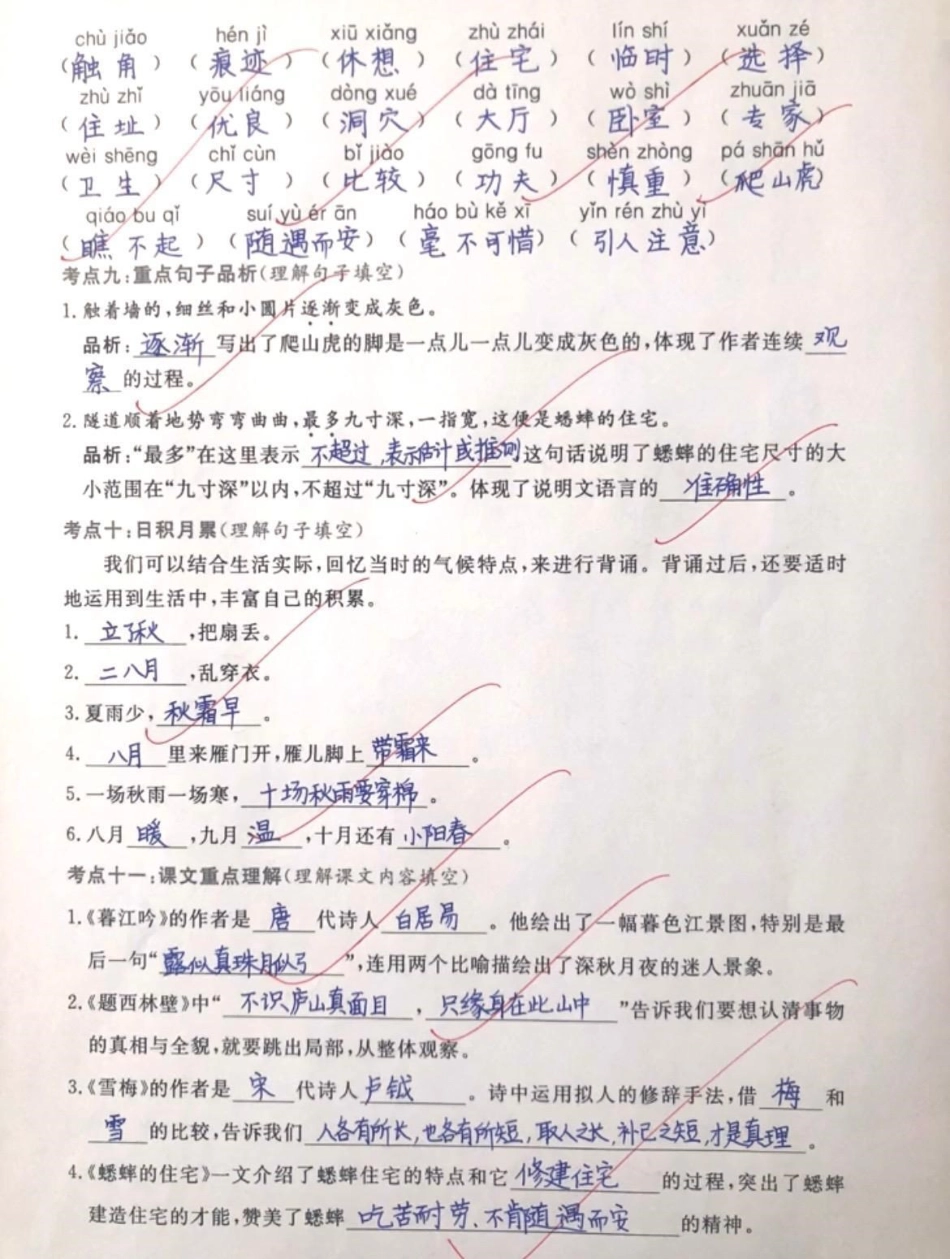 chù jiǎo hén jì xiū xiǎng zhù zhái lín shí xuǎn zé
(触角) (痕迹) (休想) (住宅) (临时) (选择)
zhù zhǐ yōu liáng dòng xué dà tīng wò shì zhuān jiā
(住址) (优良) (洞穴) (大厅) (卧室) (专家)
wèi shēng chǐ cùn bǐ jiào gōng fu shèn zhòng pá shān hǔ
(卫生) (尺寸) (比较) (功夫) (慎重) (爬山虎)
qiáo bu qǐ suí yù ér ān háo bù kě xī yǐn rén zhù yì
(瞧不起) (随遇而安) (毫不可惜) (引人注意)
考点九:重点句子品析(理解句子填空)
1.触着墙的,细丝和小圆片逐渐变成灰色。
品析:逐渐写出了爬山虎的脚是一点儿一点儿变成灰色的,体现了作者连续观
察的过程。
2.隧道顺着地势弯弯曲曲,最多九寸深,一指宽,这便是蟋蟀的住宅。
品析:“最多”在这里表示不超过,表示估计或推测这句话说明了蟋蟀的住宅尺寸的大
小范围在“九寸深”以内,不超过“九寸深”。体现了说明文语言的准确性。
考点十:日积月累(理解句子填空)
我们可以结合生活实际,回忆当时的气候特点,来进行背诵。背诵过后,还要适时
地运用到生活中,丰富自己的积累。
1.立了秋,把扇丢。
2.二八月,乱穿衣。
3.夏雨少,秋霜早。
4.八月里来雁门开,雁儿脚上带霜来。
5.一场秋雨一场寒,十场秋雨要穿棉。
6.八月暖,九月温,十月还有小阳春。
考点十一:课文重点理解(理解课文内容填空)
1.《暮江吟》的作者是唐代诗人白居易。他绘出了一幅暮色江景图,特别是最
后一句“露似真珠月似弓”,连用两个比喻描绘出了深秋月夜的迷人景象。
2.《题西林壁》中“不识庐山真面目,只缘身在此山中”告诉我们要想认清事物
的真相与全貌,就要跳出局部,从整体观察。
3.《雪梅》的作者是宋代诗人卢钺。诗中运用拟人的修辞手法,借梅和
雪的比较,告诉我们人各有所长,也各有所短,取人之长,补己之短,才是真理。
4.《蟋蟀的住宅》一文介绍了蟋蟀住宅的特点和它修建住宅的过程,突出了蟋蟀
建造住宅的才能,赞美了蟋蟀吃苦耐劳、不肯随遇而安的精神。